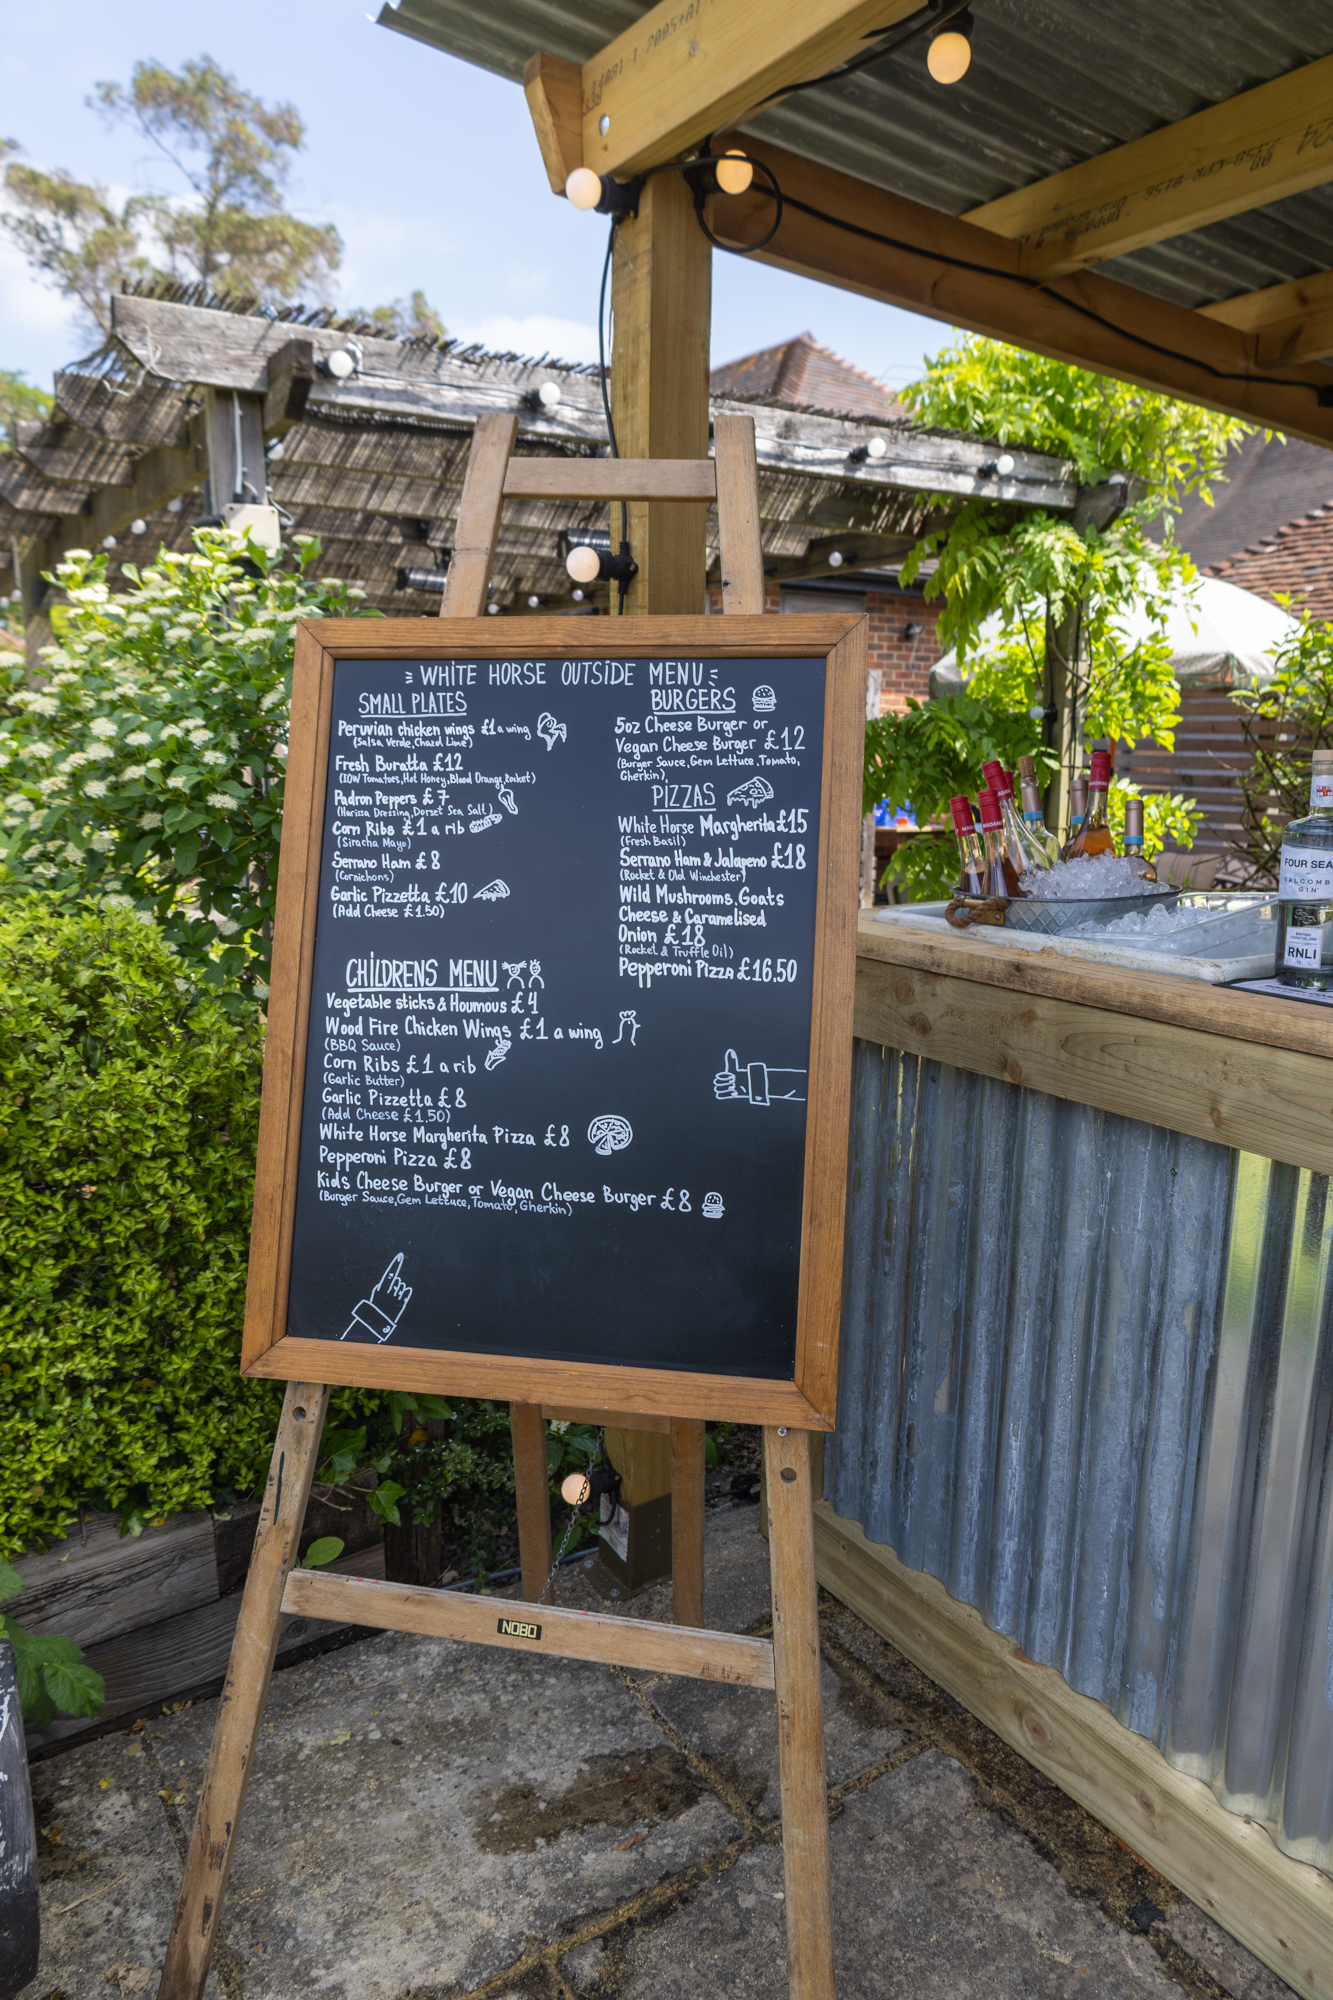 WHITE HORSE OUTSIDE MENU
SMALL PLATES
Peruvian chicken wings £1 a wing
(Salsa Verde, Chazd Lime)
Fresh Buratta £12
(IOW Tomatoes, Hot Honey, Blood Orange, Rocket)
Padron Peppers £7
(Harissa Dressing, Dorset Sea Salt)
Corn Ribs £1 a rib
(Siracha Mayo)
Serrano Ham £8
(Cornichons)
Garlic Pizzetta £10
(Add Cheese £1.50)
CHILDRENS MENU
Vegetable sticks & Houmous £4
Wood Fire Chicken Wings £1 a wing
(BBQ Sauce)
Corn Ribs £1 a rib
(Garlic Butter)
Garlic Pizzetta £8
(Add Cheese £1.50)
White Horse Margherita Pizza £8
Pepperoni Pizza £8
Kids Cheese Burger or Vegan Cheese Burger £8
(Burger Sauce, Gem Lettuce, Tomato, Gherkin)
BURGERS
5oz Cheese Burger or
Vegan Cheese Burger £12
(Burger Sauce, Gem Lettuce, Tomato,
Gherkin),
PIZZAS
White Horse Margherita £15
(Fresh Basil)
Serrano Ham & Jalapeno £18
(Rocket & Old Winchester)
Wild Mushrooms, Goats
Cheese & Caramelised
Onion £18
(Rocket & Truffle Oil)
Pepperoni Pizza £16.50
NOBO
FOUR SEA
SALCOMB
GIN
RNLI